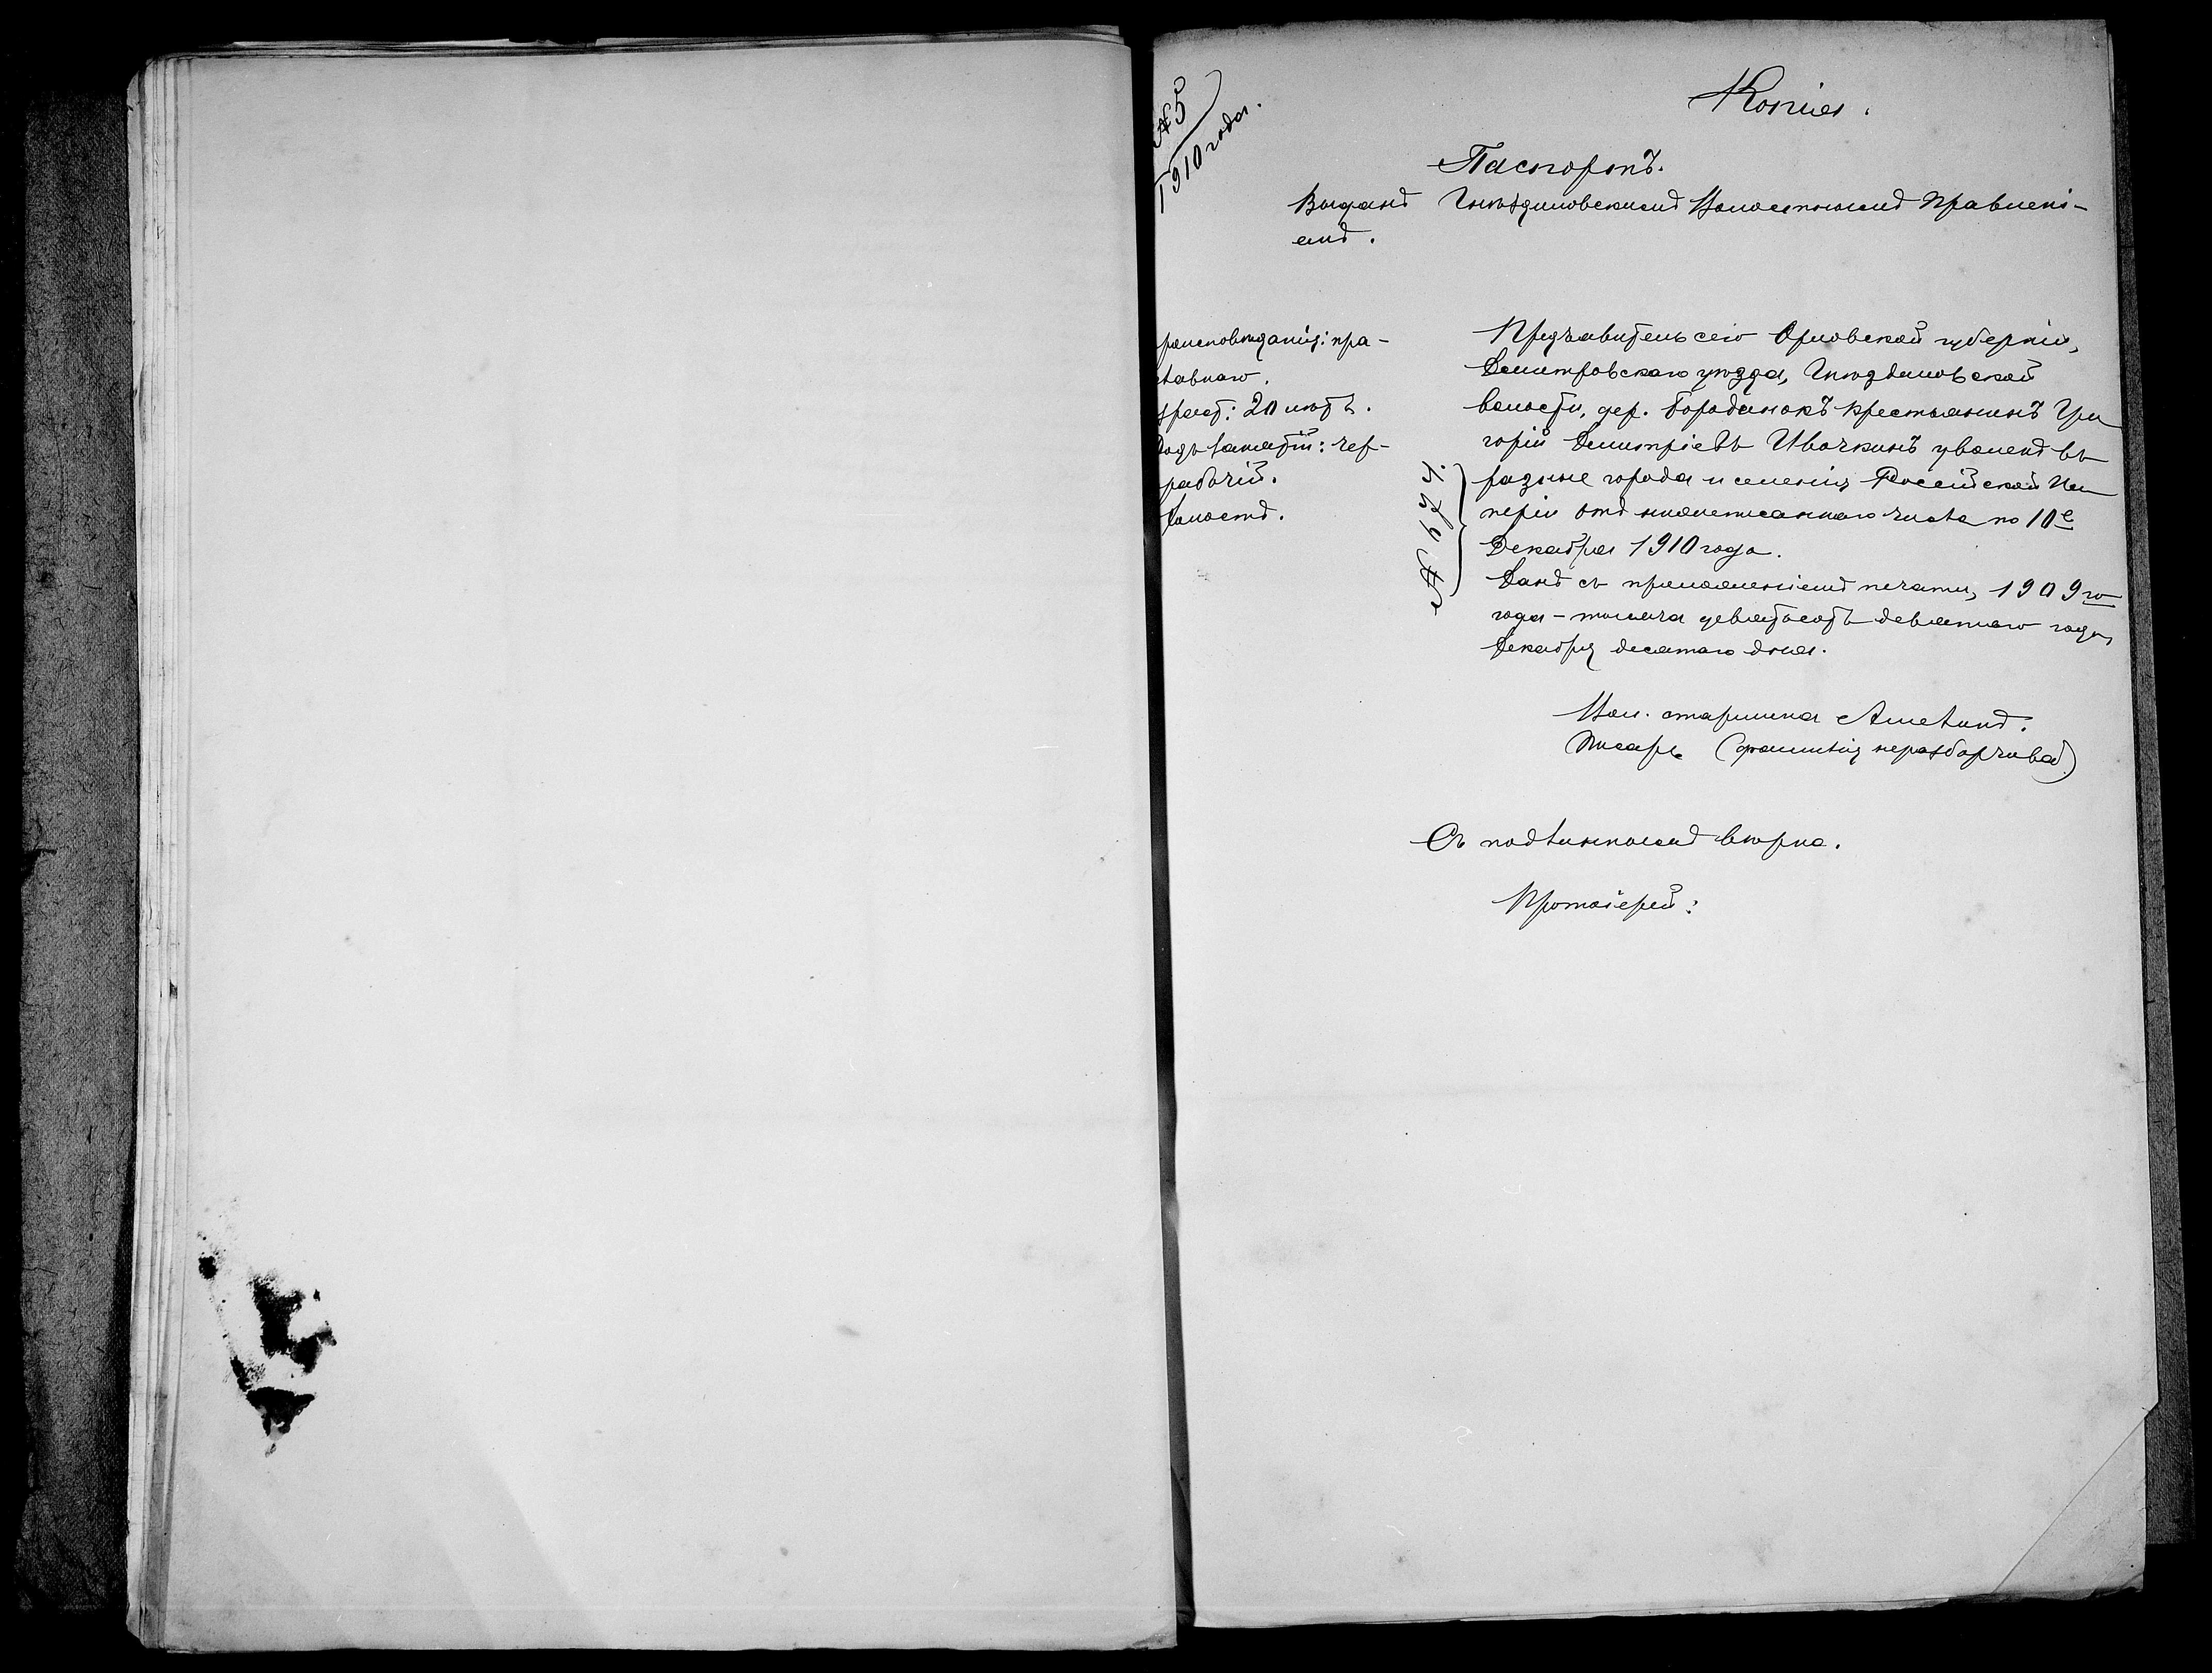 № 5
1910 года.
Копія.
Паспортъ.
Выданъ Гнѣздиловскимъ Волостнымъ Правлені-
емъ.
роисповѣданія: пра-
славнаго.
зрастъ: 20 лѣтъ.
Родъ занятій: чер-
рабочій.
Холостъ.
Предъявитель сего Орловской губерніи,
Дмитровскаго уѣзда, Гнѣздиловской
волости, дер. Городинокъ крестьянинъ Гри
горій Дмитріевъ Ивочкинъ уволенъ въ
разные города и селенія Россійской Им
періи отъ нижеписаннаго числа по 10е
Декабря 1910 года.
Данъ съ приложеніемъ печати, 1909го
года - тысяча девятьсотъ девятаго года,
Декабря десятаго дня.
Вол. старшина
Писарь (фамилія неразборчива)
Съ подлиннымъ вѣрно.
Протоіерей: